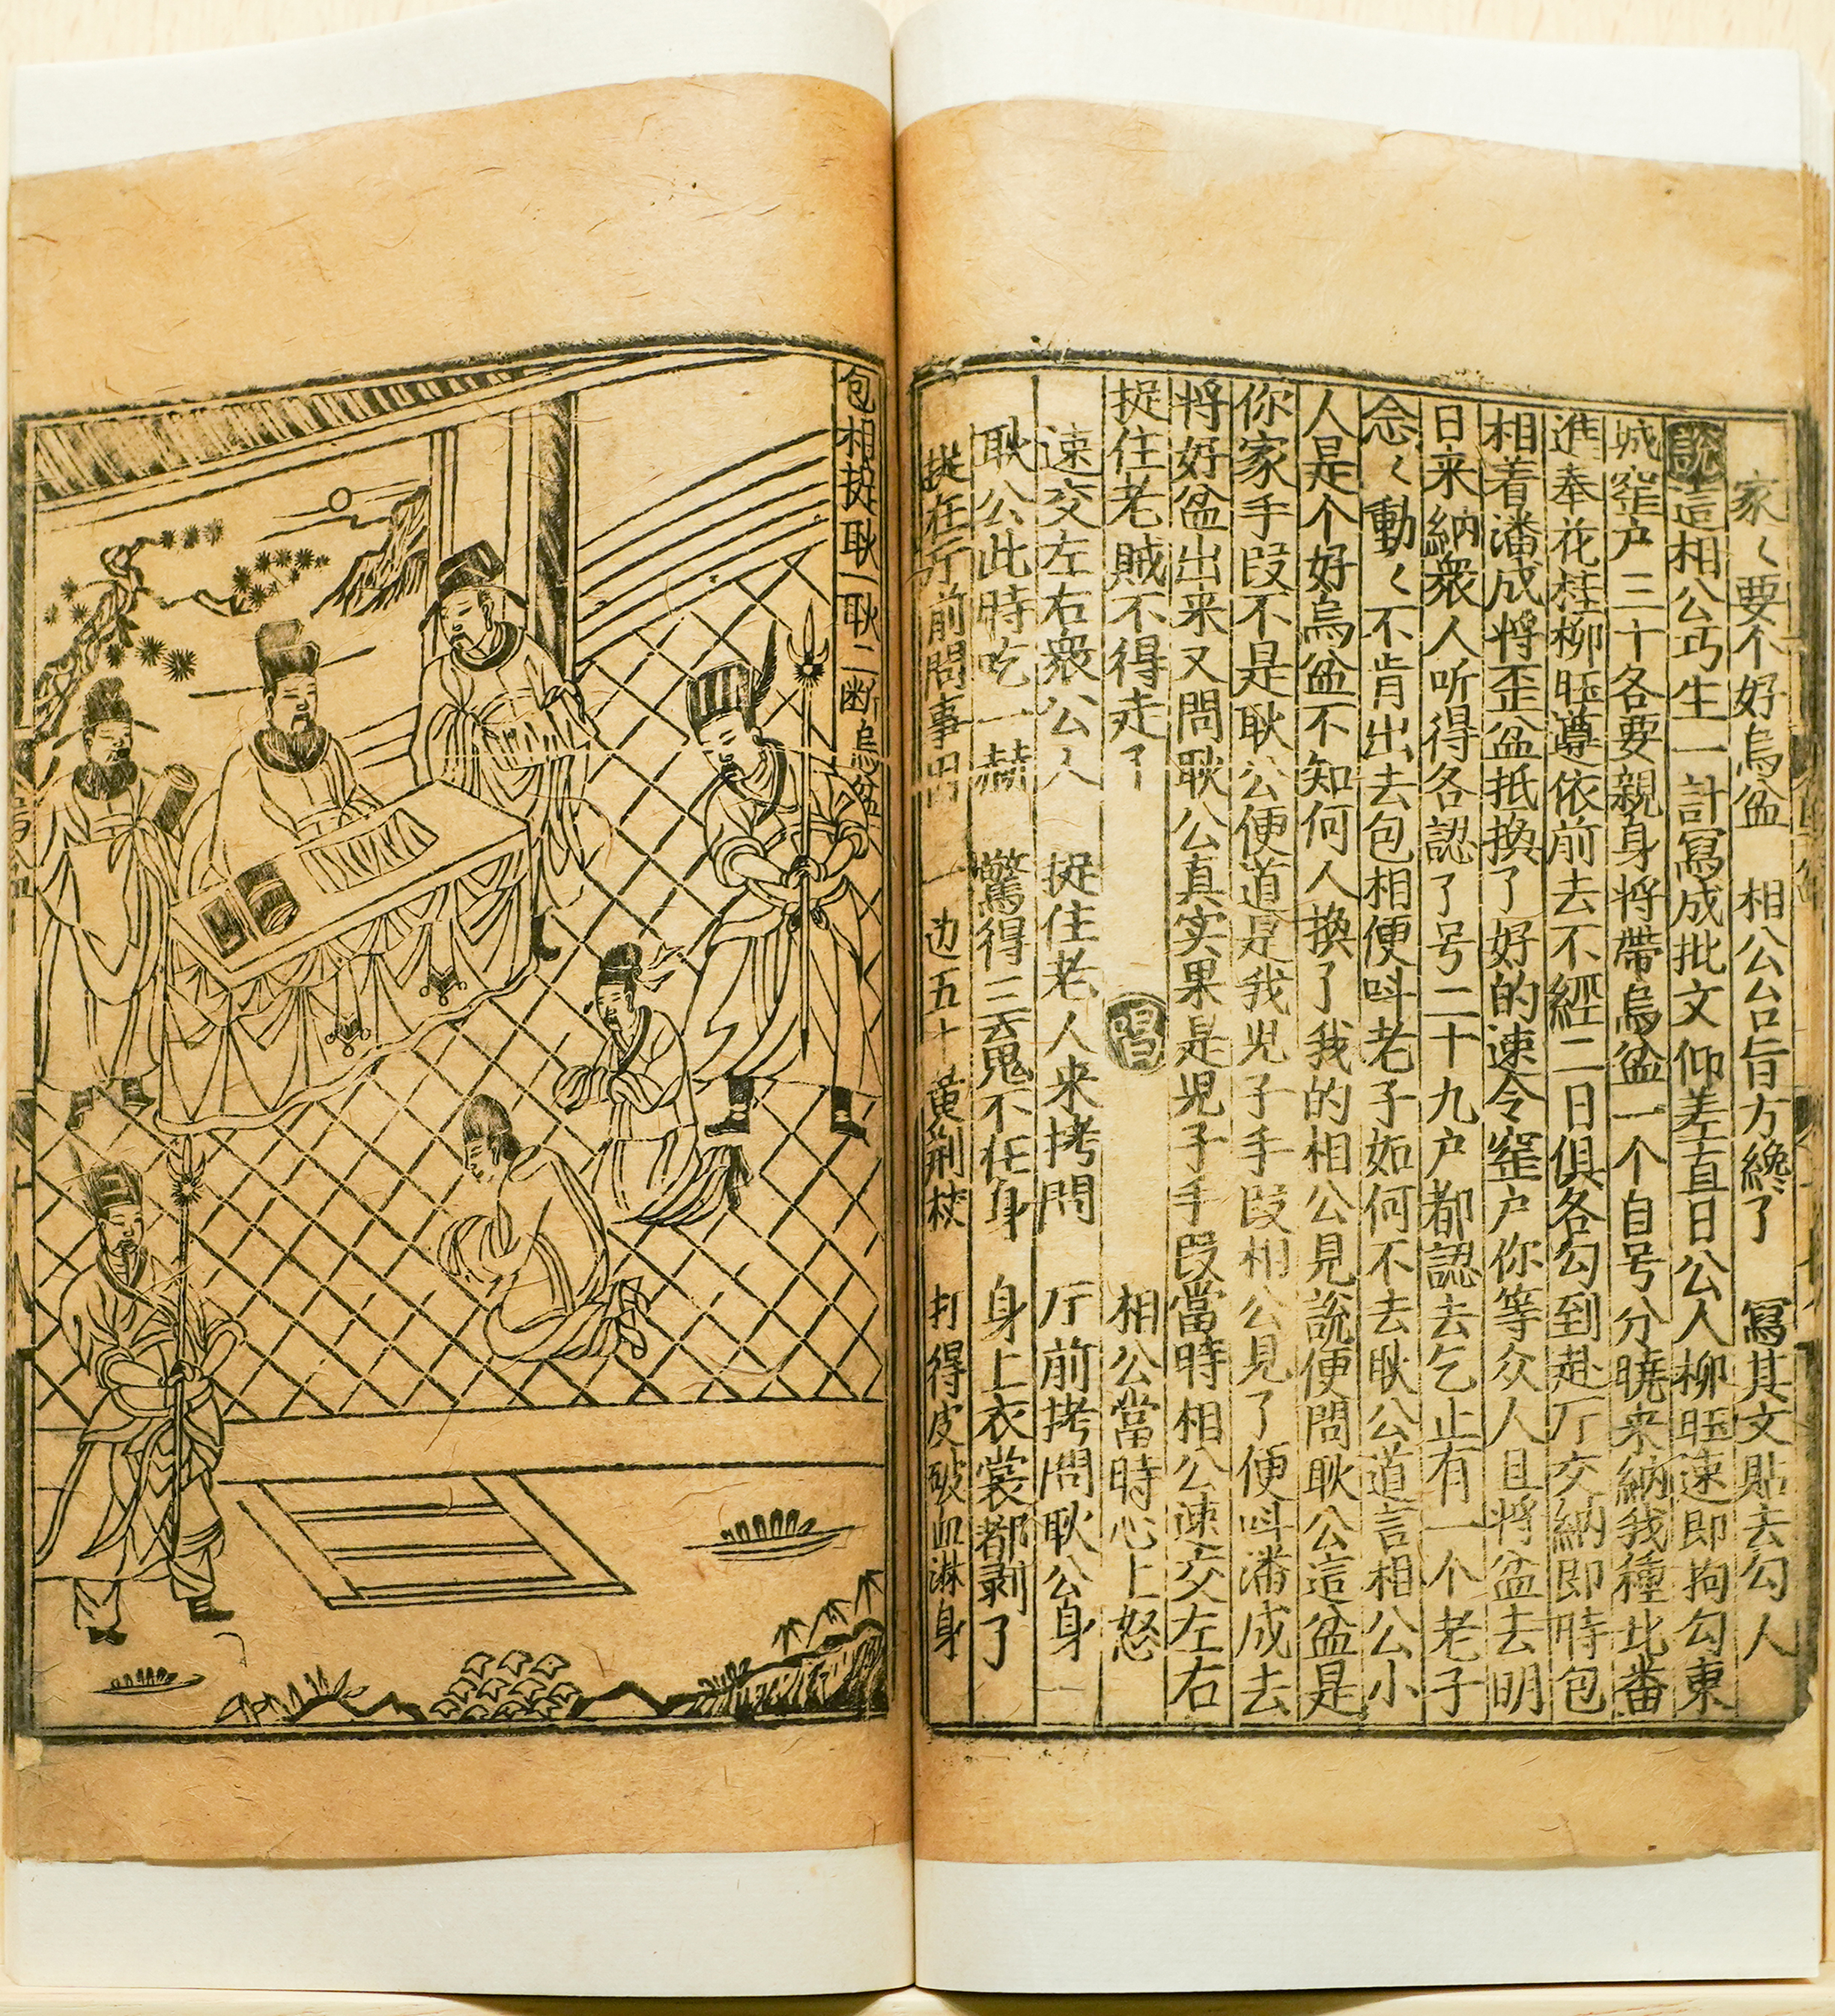 家〻要个好烏盆　相公台旨方纔了　寫其文貼去勾人
說這相公巧生一計寫成批文仰差直日公人柳旺速即拘勾東
城窑户三十各要親身将帶烏盆一个自号分曉来納我種此番
進奉花桂柳旺遵依前去不經二日俱各勾到赴厅交納即時包
相着潘成将歪盆抵換了好的速令窑户你等众人且将盆去明
日来納衆人听得各認了号二十九户都認去乞止有一个老子
念〻動〻不肯出去包相便呌老子如何不去耿公道言相公小
人是个好烏盆不知何人換了我的相公見說便問耿公這盆是
你家手段不是耿公便道是我児子手段相公見了便呌潘成去
将好盆出来又問耿公真实果是児子手段當時相公速交左右
捉住老賊不得走了　唱　相公當時心上怒
速交左右衆公人　捉住老人来拷問　厅前拷問耿公身
耿公此時吃一赫　驚得三䰟不在身　身上衣裳都剥了
在厅前問事因　一边五十黄荆杖　打得皮破血淋身
包相捉耿一耿二断烏盆